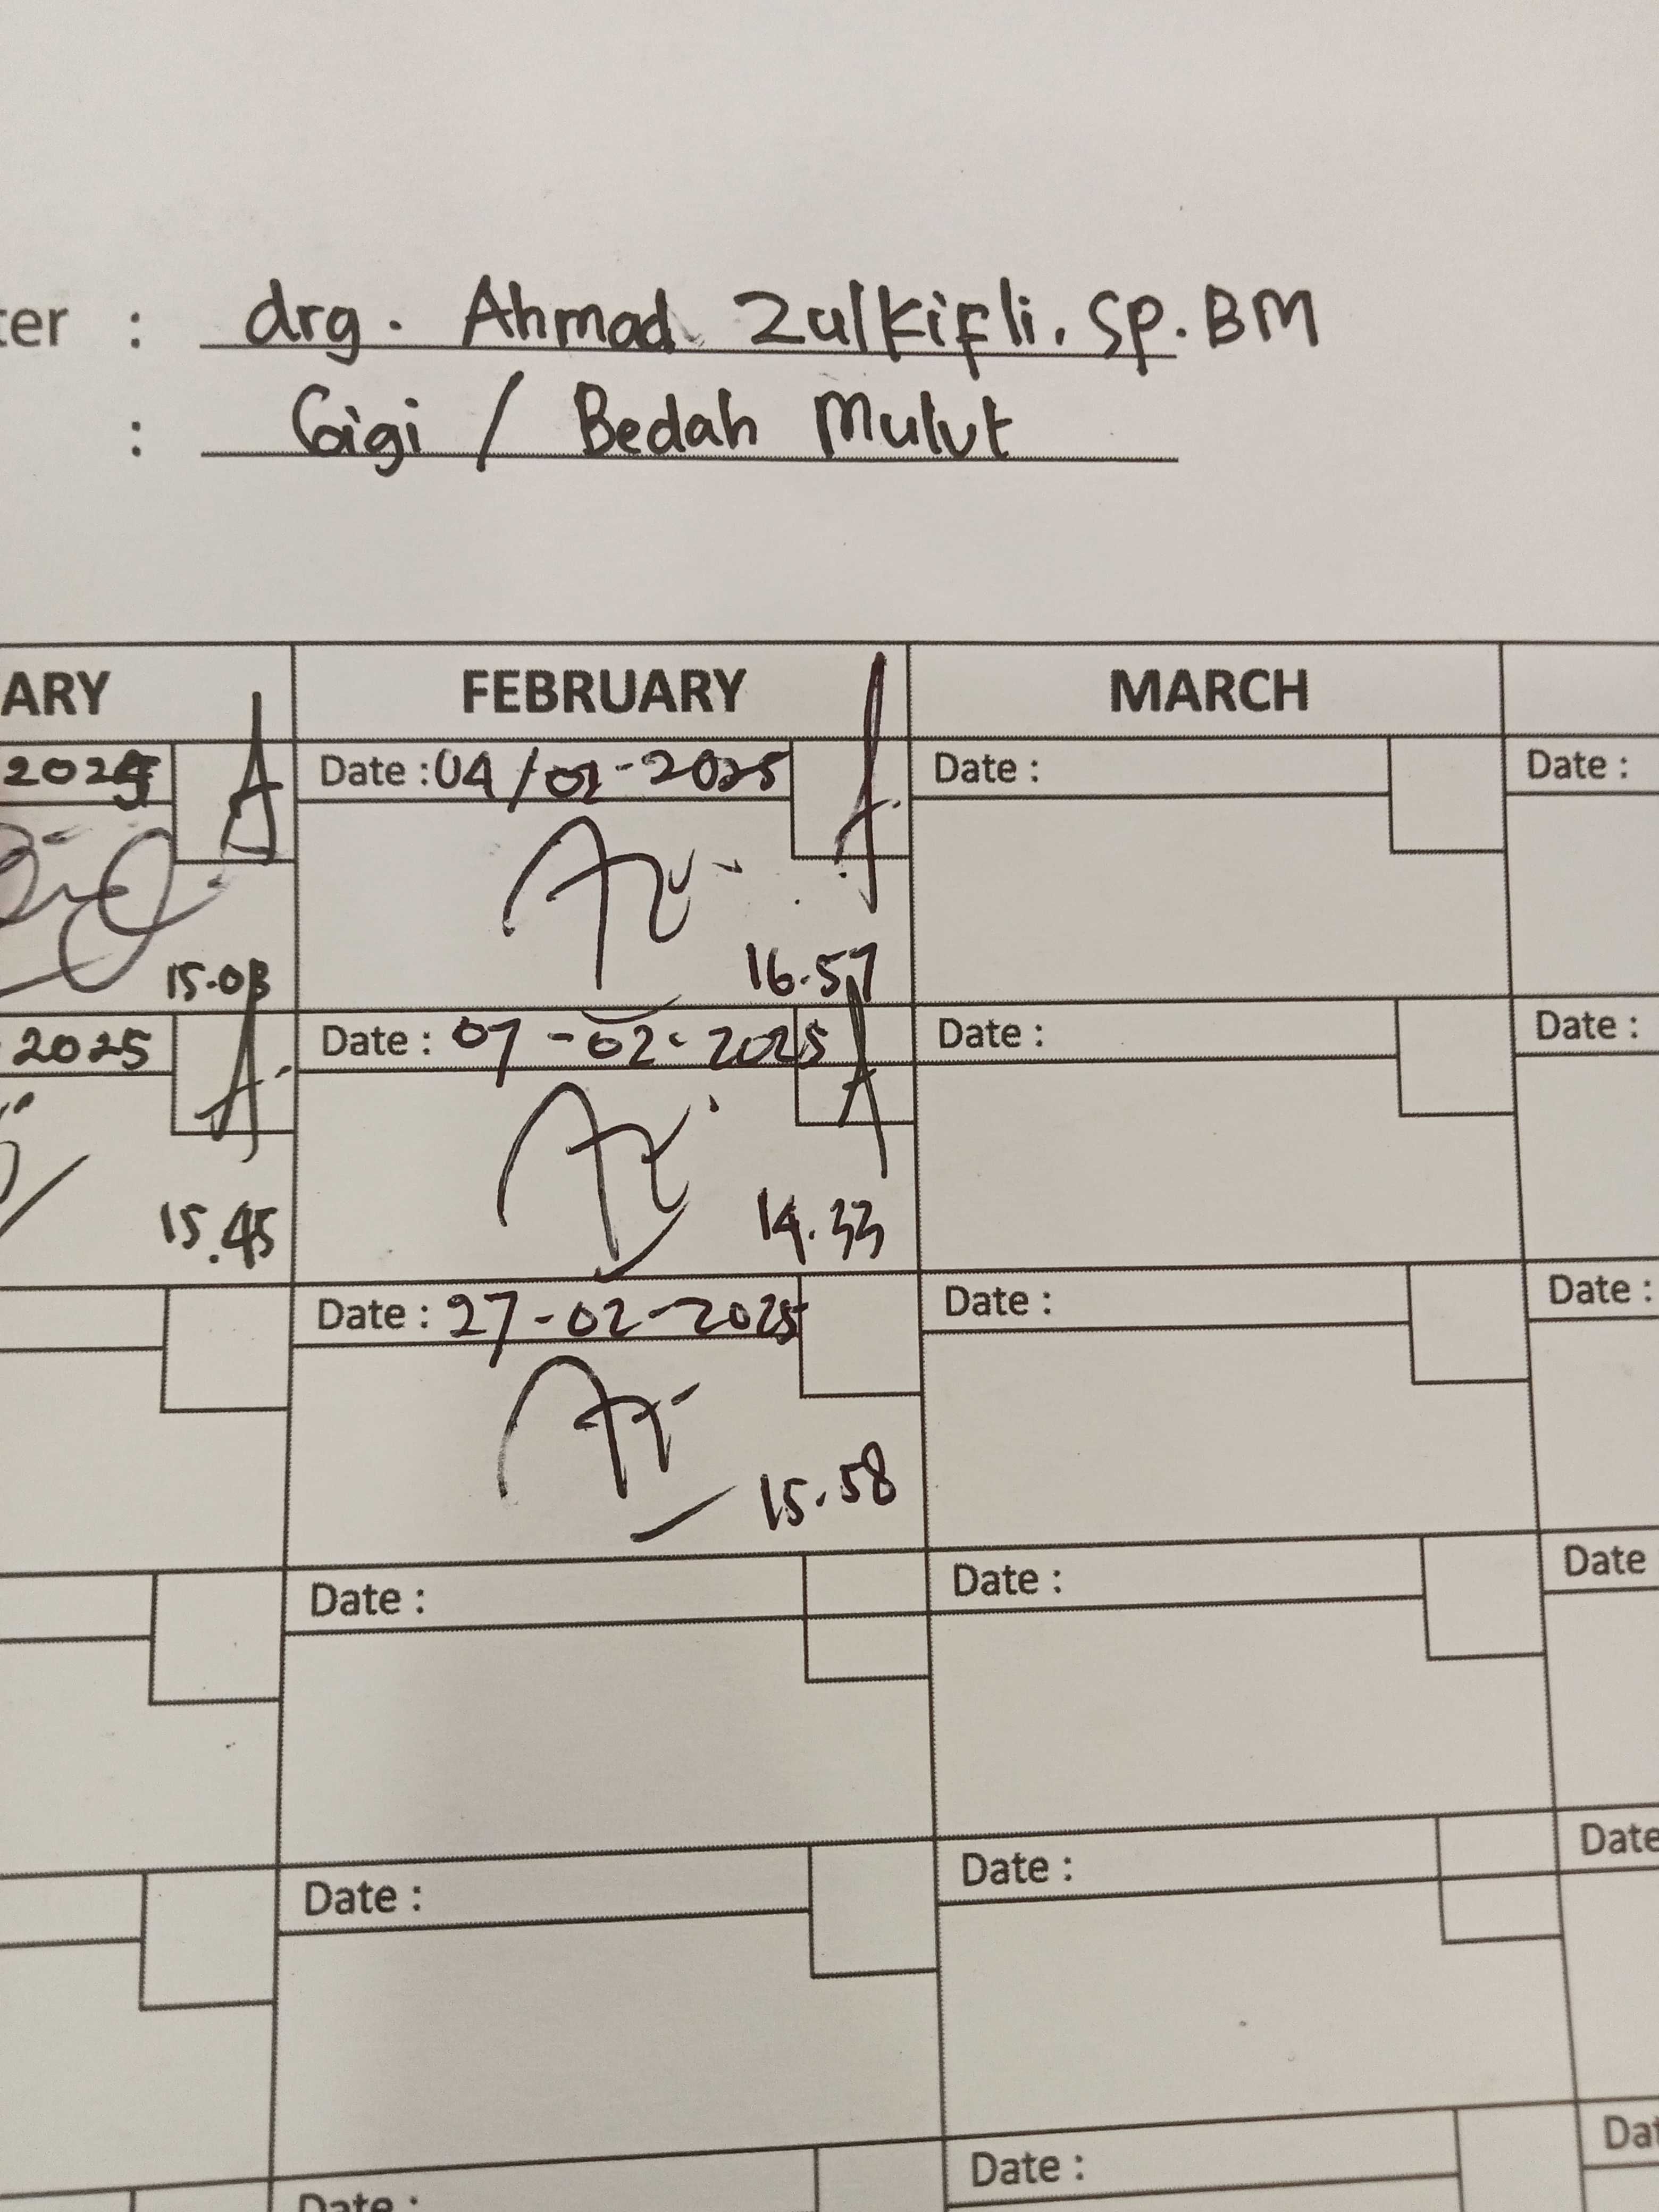 ter : drg. Ahmad Zulkifli. Sp. BM
: Gigi / Bedah Mulut
ARY FEBRUARY MARCH
2025 Date : 04/02-2025 Date : Date :
15.03 16.57
2025 Date : 07-02-2025 Date : Date :
15.45 14.33
Date : 27-02-2025 Date : Date :
15.58
Date : Date : Date
Date : Date : Date
Date : Date : Dat